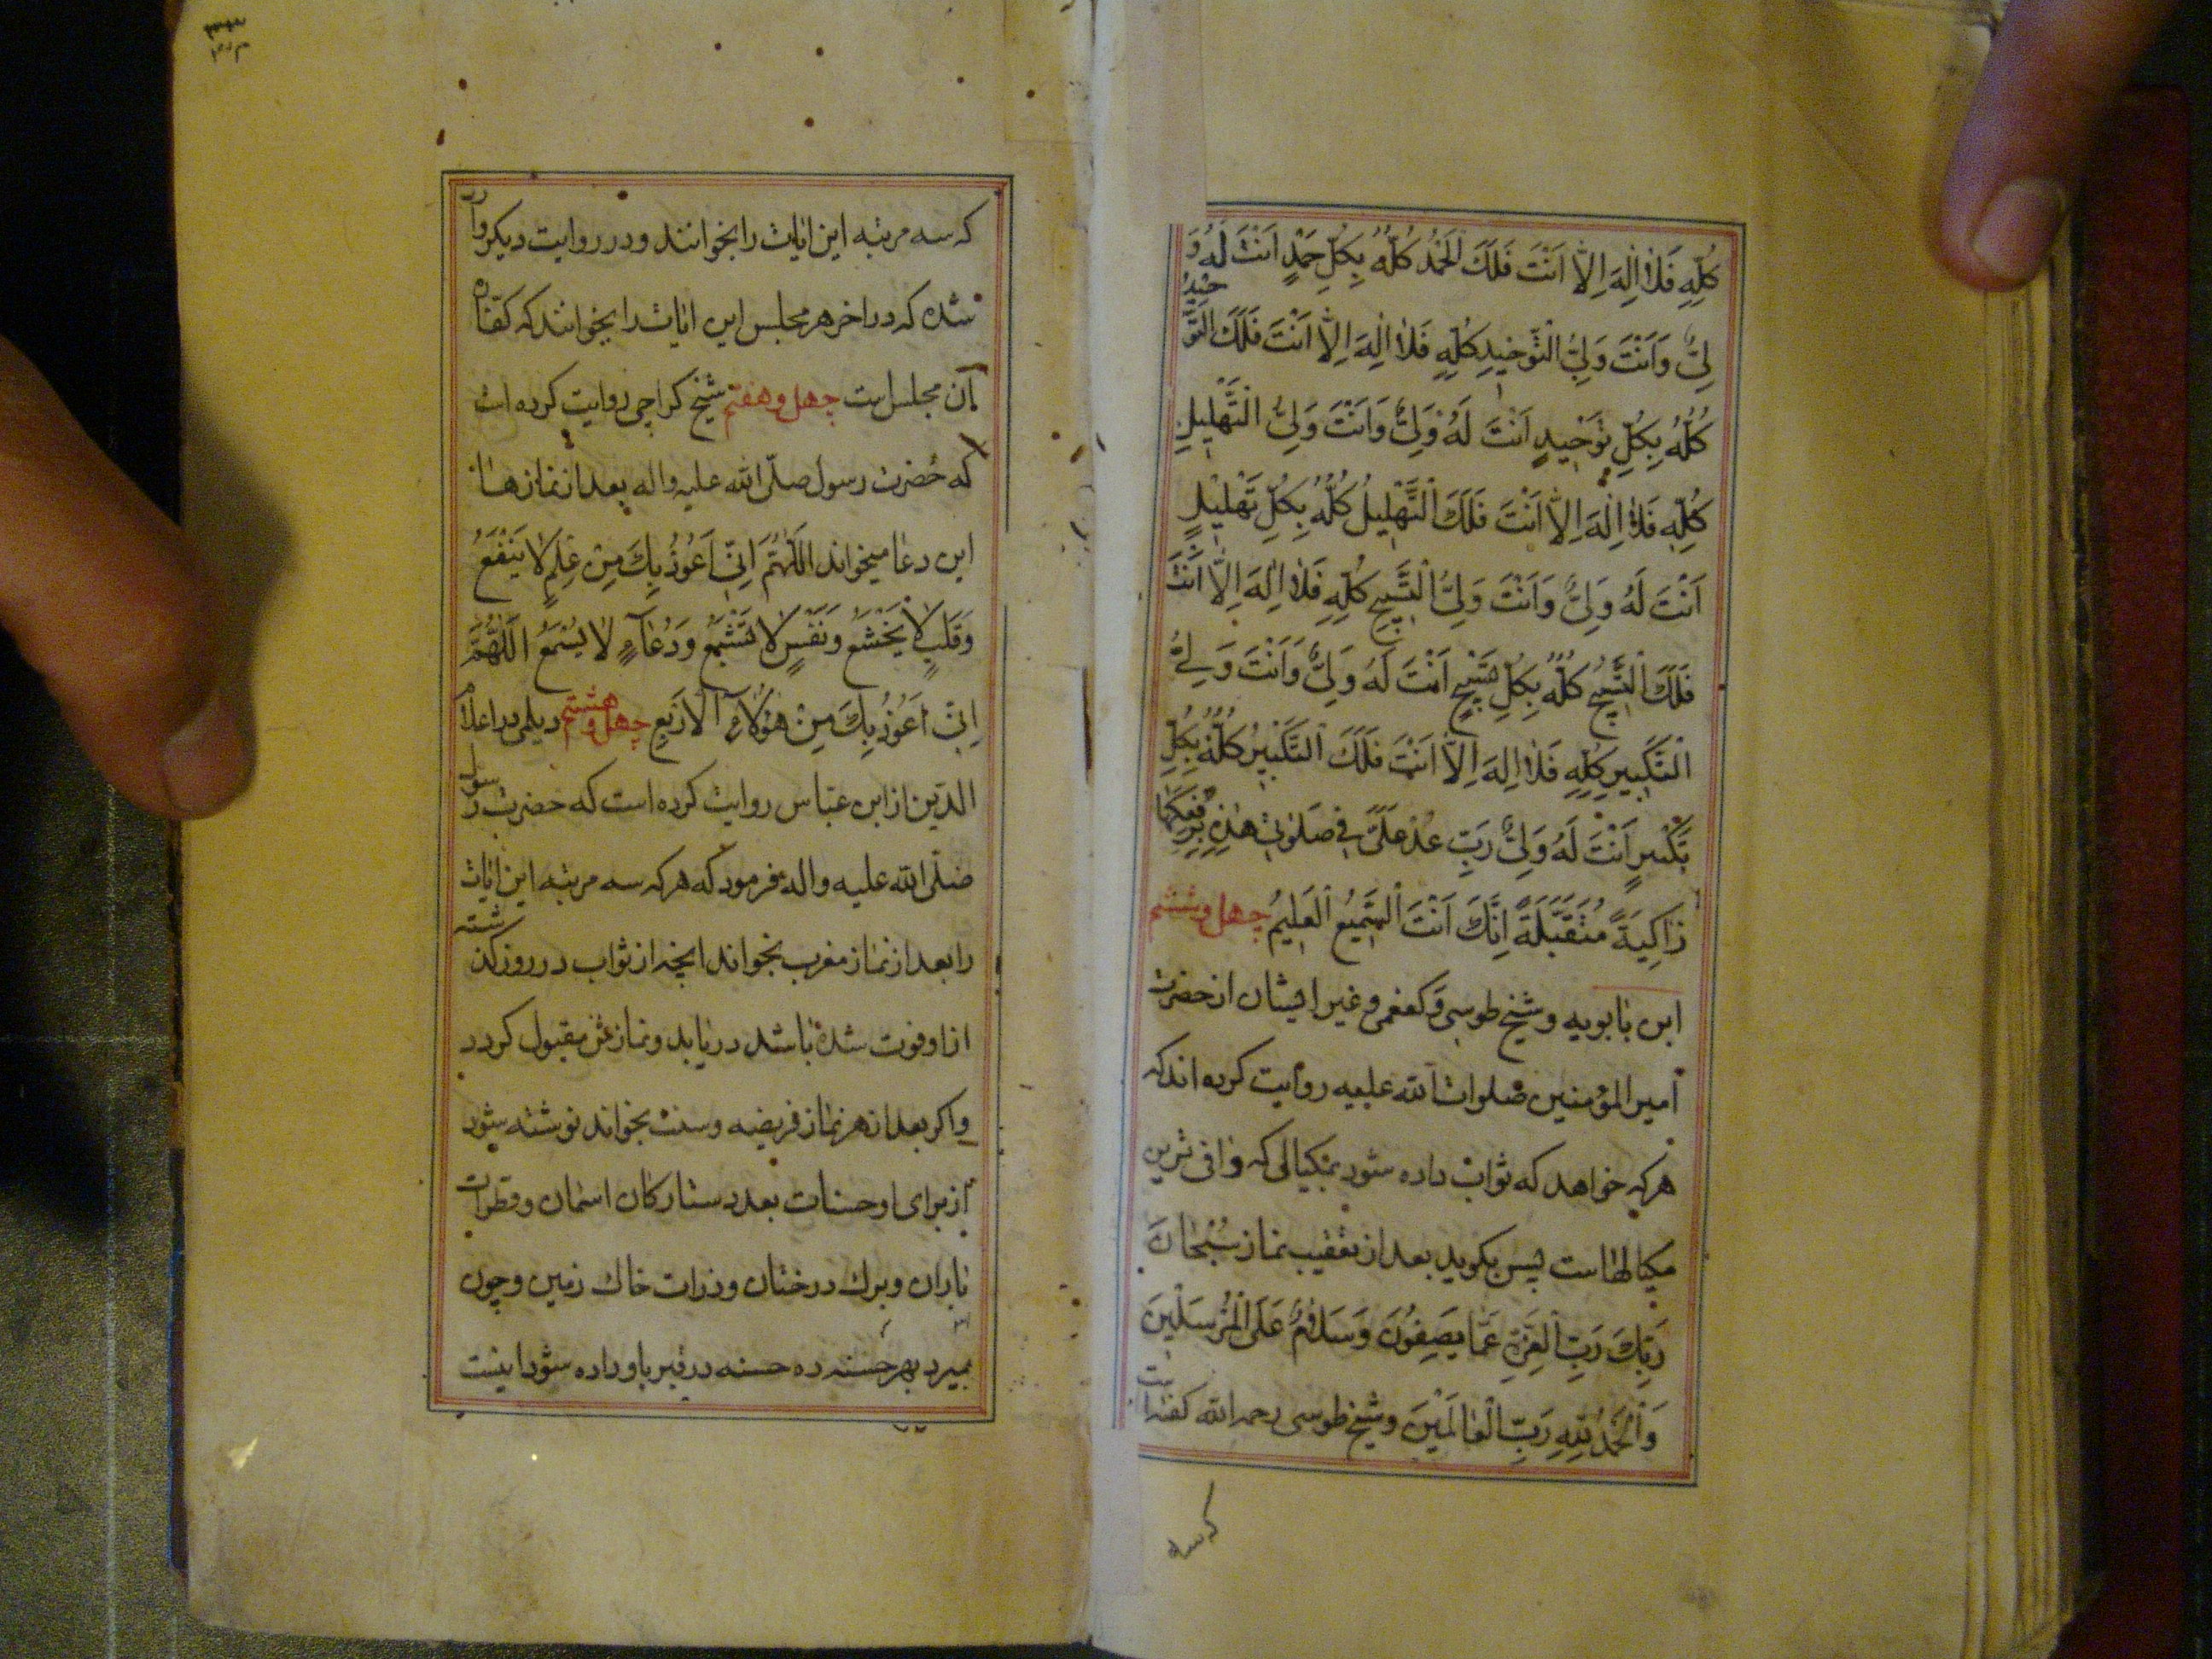 كُلِّهِ فَلا اِلٰهَ اِلّا اَنْتَ فَلَكَ الْحَمْدُ كُلُّهُ بِكُلِّ حَمْدٍ اَنْتَ لَهُ وَ
لِىٌّ وَاَنْتَ وَلِىُّ التَّوْحيدِ كُلِّهِ فَلا اِلٰهَ اِلّا اَنْتَ فَلَكَ التَّوْحيدُ
كُلُّهُ بِكُلِّ تَوْحيدٍ اَنْتَ لَهُ وَلِىٌّ وَاَنْتَ وَلِىُّ التَّهْليلِ
كُلِّهِ فَلا اِلٰهَ اِلّا اَنْتَ فَلَكَ التَّهْليلُ كُلُّهُ بِكُلِّ تَهْليلٍ
اَنْتَ لَهُ وَلِىٌّ وَاَنْتَ وَلِىُّ التَّسْبيحِ كُلِّهِ فَلا اِلٰهَ اِلّا اَنْتَ
فَلَكَ التَّسْبيحُ كُلُّهُ بِكُلِّ تَسْبيحٍ اَنْتَ لَهُ وَلِىٌّ وَاَنْتَ وَلِىُّ
التَّكْبيرِ كُلِّهِ فَلا اِلٰهَ اِلّا اَنْتَ فَلَكَ التَّكْبيرُ كُلُّهُ بِكُلِّ
تَكْبيرٍ اَنْتَ لَهُ وَلِىٌّ رَبِّ عُدْ عَلَىَّ فى صَلوتى هٰذِهِ بِرَفْعِكَها
زاكِيَةً مُتَقَبَّلَةً اِنَّكَ اَنْتَ السَّميعُ الْعَليمُ چهل و ششم
ابن بابويه و شيخ طوسى و كفعمى و غير ايشان از حضرت
امير المؤمنين صلوات الله عليه روايت كرده اند كه
هركه خواهد كه ثواب داده شود بمكيالى كه وافى ترين
مكيالهاست پس بكويد بعد از تعقيب نماز سُبْحانَ
رَبِّكَ رَبِّ الْعِزَّةِ عَمّا يَصِفُونَ وَسَلامٌ عَلَى الْمُرْسَلينَ
وَالْحَمْدُ لِلّٰهِ رَبِّ الْعالَمينَ و شيخ طوسى رحمه الله كفته است
كه سه
كه سه مرتبه اين ايات را بخوانند و در روايت ديكر وارد
شده كه در اخر هر مجلس اين ايات را بخوانند كه كفتاره
آن مجلس است چهل و هفتم شيخ كراجى روايت كرده است
كه حضرت رسول صلّى الله عليه واله بعد از نمازها
اين دعا ميخواند اَللّٰهُمَّ اِنّى اَعُوذُ بِكَ مِنْ عِلْمٍ لا يَنْفَعُ
وَقَلْبٍ لا يَخْشَعُ وَنَفْسٍ لا تَشْبَعُ وَدُعاءٍ لا يُسْمَعُ اَللّٰهُمَّ
اِنّى اَعُوذُ بِكَ مِنْ هؤُلاءِ الْاَرْبَعِ چهل و هشتم ديلمى در اعلام
الدّين از ابن عبّاس روايت كرده است كه حضرت رسول
صلّى الله عليه واله فرمود كه هركه سه مرتبه اين ايات
را بعد از نماز مغرب بخواند انچه از ثواب در روز كذشته
از او فوت شده باشد دريابد و نمازش مقبول كردد
و اكر بعد از هر نماز فريضه و سنت بخواند نوشته شود
از براى او حسنات بعدد ستاركان اسمان و قطرات
باران و برك درختان و ذرات خاك زمين و چون
بميرد بهر حسنه ده حسنه در قبر باو داده شود اينست